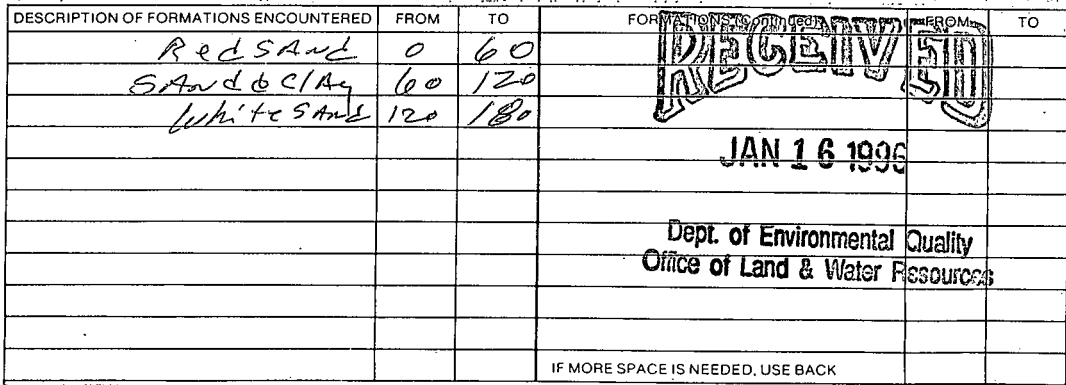 DESCRIPTION OF FORMATIONS ENCOUNTERED FROM TO FORMATIONS (Continued) FROM TO
Red SAnd 0 60
SAnd & ClAy 60 120
White SAnd 120 180
RECEIVED
JAN 16 1996
Dept. of Environmental Quality
Office of Land & Water Resources
IF MORE SPACE IS NEEDED, USE BACK